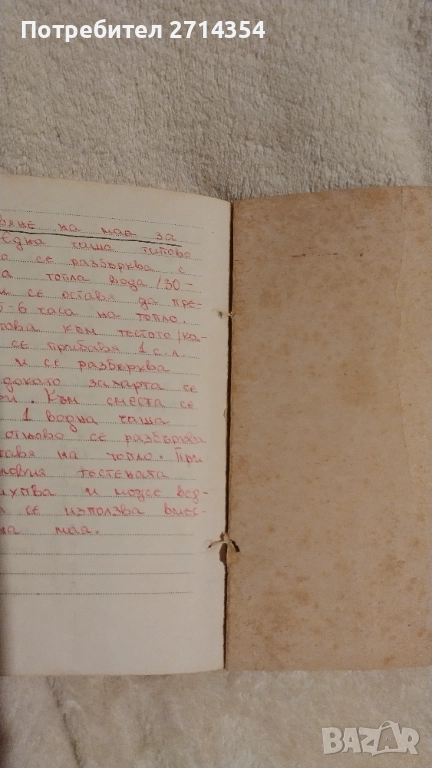 Потребител 2714354
вяне на мая за
Една чаша типово
о се разбърква с
а топла вода /30-
м се оставя да пре-
5-6 часа на топло.
това към тестото /ка-
се прибавя 1 с.л.
и се разбърква
докато захарта се
ѝ. Към сместа се
1 водна чаша
отново се разбърква
тавя на топло. При
ловия тестената
ихва и може вед-
и се използва вмес-
на мая.
BAZAR